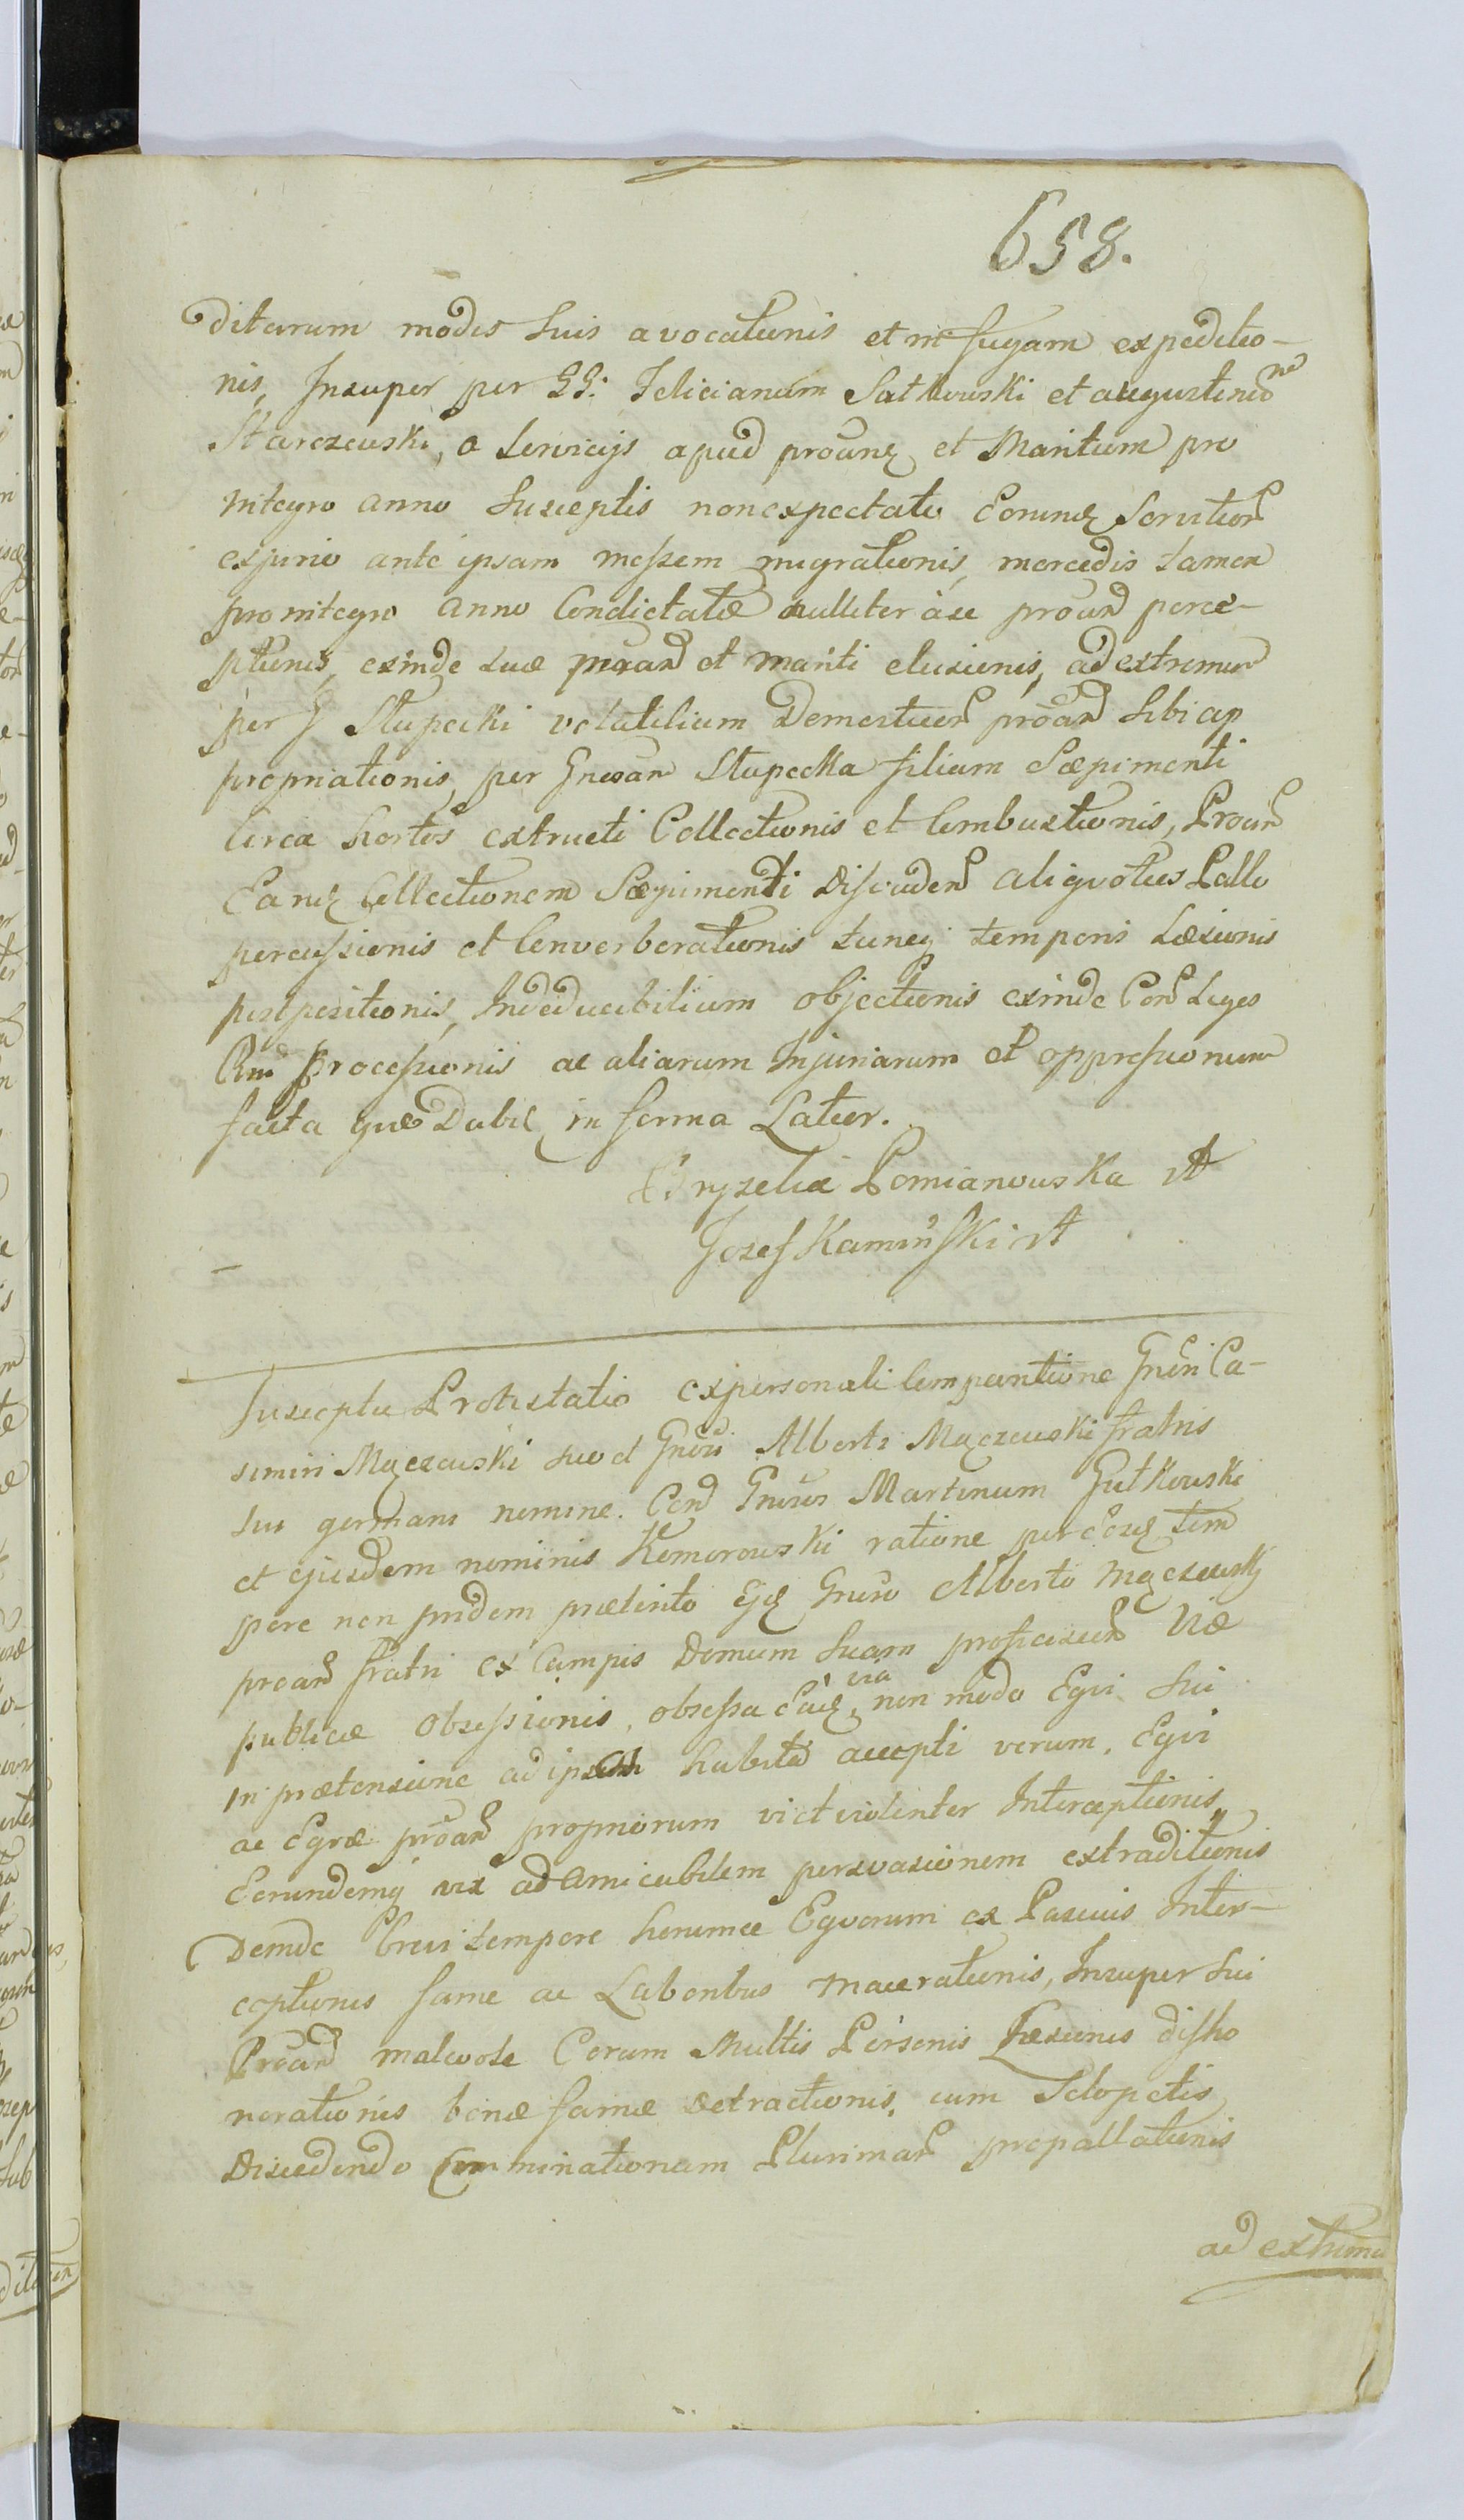 658.
ditarum modis suis avocationis et in fugam expeditio-
nis, Insuper per GG: Felicianum Satkowski et augustinum
Starczewski, a servicijs apud proãnẽ et Maritum pro
integro anno susceptis non expectato Eorum servitior
ex jurio ante ipsam messem migrationis, mercedis tamen
pro integro anno Condictatæ nulliter a se proãn perce-
ptionis, exinde suæ proãn et mariti elusionis, ad extremum
per G Stupecki volatilium Domesticor proãn sibi ap
propriationis, per Gnosam Stupecka filiam Sæpimenti
circa hortos extructi Collectionis et Combustionis, Proãn
Eamq Collectionem Sæpimenti dissvaden aliquoties Pallo
percussionis et Converberationis tuncq temporis Læsionis
postpositionis, Indeducibilium objectionis exinde Con Leges
Rni Processionis ac aliarum Injuriarum et oppressionum
facta quæ Dabit in forma Latior.
Bryzelia Pomianowska A
Jozef Kamiński A
Suscepta Protestatio ex personali Comparitione Gnõsi Ca-
simiri Mączewski suo et Gnõsi Alberti Mączewski fratris
sui germani nomine. Con Gnõsos Martinum Gutkowski
et ejusdem nominis Komorowski ratione per Eosq tem
pore non pridem præterito Ejq Gnõso Alberto Mączewski
proãn fratri ex Campis Domum suam proficiscen Viæ
publicæ obsessionis, obsessa Eaq via non modo Equi sui
in prætensione ad ipsos habita accepti verum, Equi
ac Equæ proãn propriorum vi et violenter Interceptionis,
Eorundemq vix ad amicabilem persvasionem extraditionis
Deinde brevi tempore horumce Equorum ex Pascuis Inter-
ceptionis fame ac Laboribus macerationis, Insuper sui
Proãn malevole Coram Multis Personis Læsionis disho
norationis bonæ famæ detractionis, cum Sclopetis
Discedendo Comminationum Plurimar propallationis
ad extremu